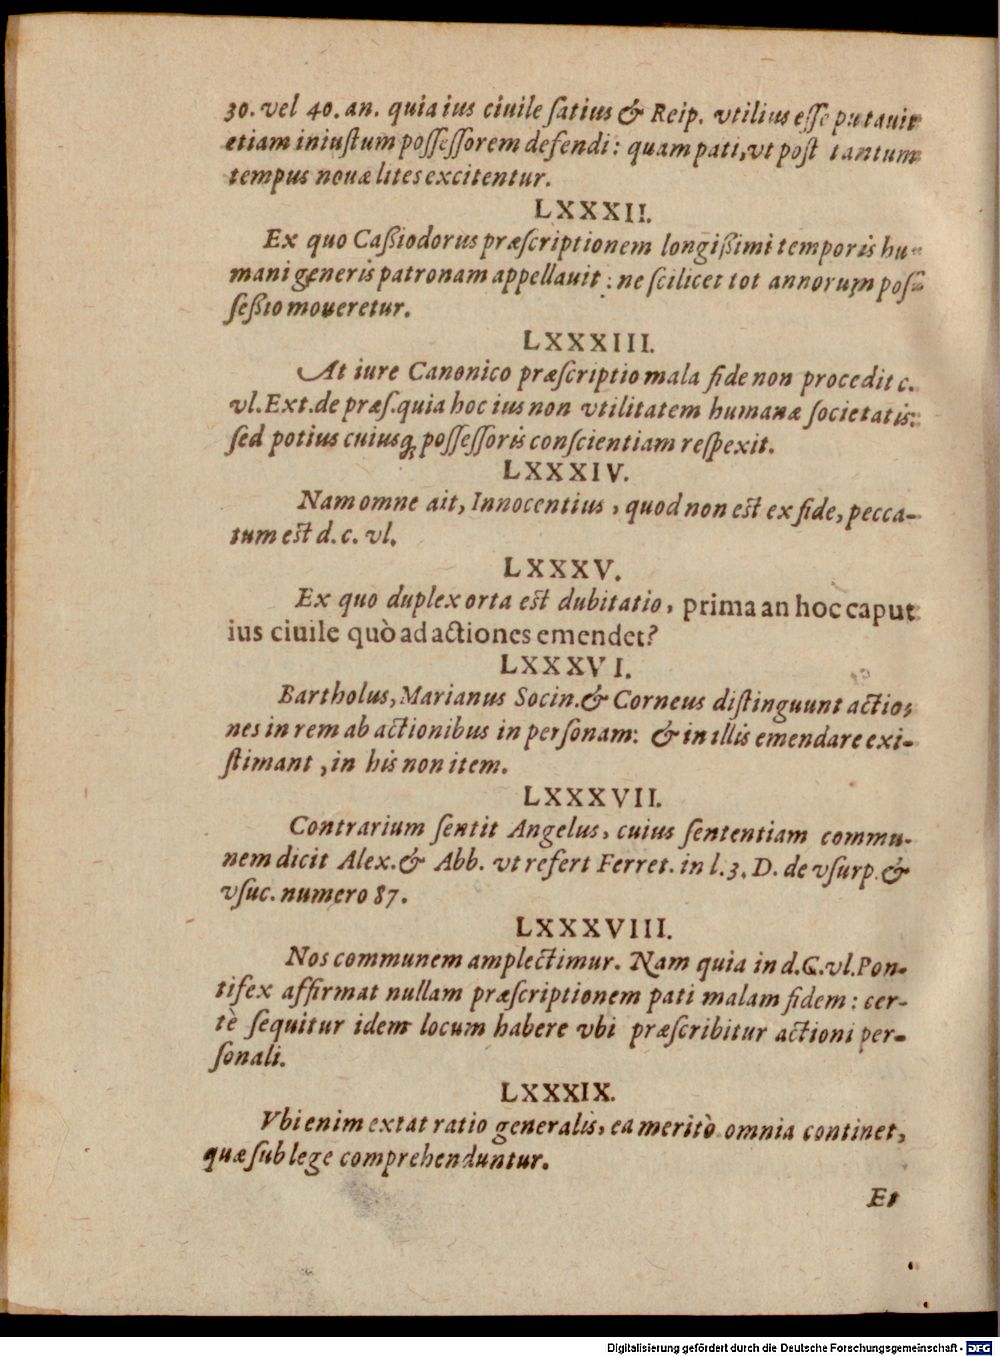 30. vel 40. an. quia ius ciuile ſatius & Reip. vtilius eſſe putauit
etiam iniuſtum poſſeſſorem defendi: quam pati, vt poſt tantum
tempus nouæ lites excitentur.
LXXXII.
Ex quo Caßiodorus præſcriptionem longißimi temporis hu-
mani generis patronam appellauit: ne ſcilicet tot annorum poſ-
ſeßio moueretur.
LXXXIII.
At iure Canonico præſcriptio mala fide non procedit c.
vl. Ext. de præſ. quia hoc ius non vtilitatem humanæ ſocietatis:
ſed potius cuiusq; poſſeſſoris conſcientiam reſpexit.
LXXXIV.
Nam omne ait, Innocentius, quod non est ex fide, pecca-
tum est d. c. vl.
LXXXV.
Ex quo duplex orta est dubitatio, prima an hoc caput
ius ciuile quò ad actiones emendet?
LXXXVI.
Bartholus, Marianus Socin. & Corneus diſtinguunt actio-
nes in rem ab actionibus in perſonam: & in illis emendare exi-
ſtimant, in his non item.
LXXXVII.
Contrarium ſentit Angelus, cuius ſententiam commu-
nem dicit Alex. & Abb. vt refert Ferret. in l. 3. D. de vſurp. &
vſuc. numero 87.
LXXXVIII.
Nos communem amplectimur. Nam quia in d. C. vl. Pon-
tifex affirmat nullam præſcriptionem pati malam fidem: cer-
tè ſequitur idem locum habere vbi præſcribitur actioni per-
ſonali.
LXXXIX.
Vbi enim extat ratio generalis, ea meritò omnia continet,
quæ ſub lege comprehenduntur.
Et
Digitalisierung gefördert durch die Deutsche Forschungsgemeinschaft - DFG